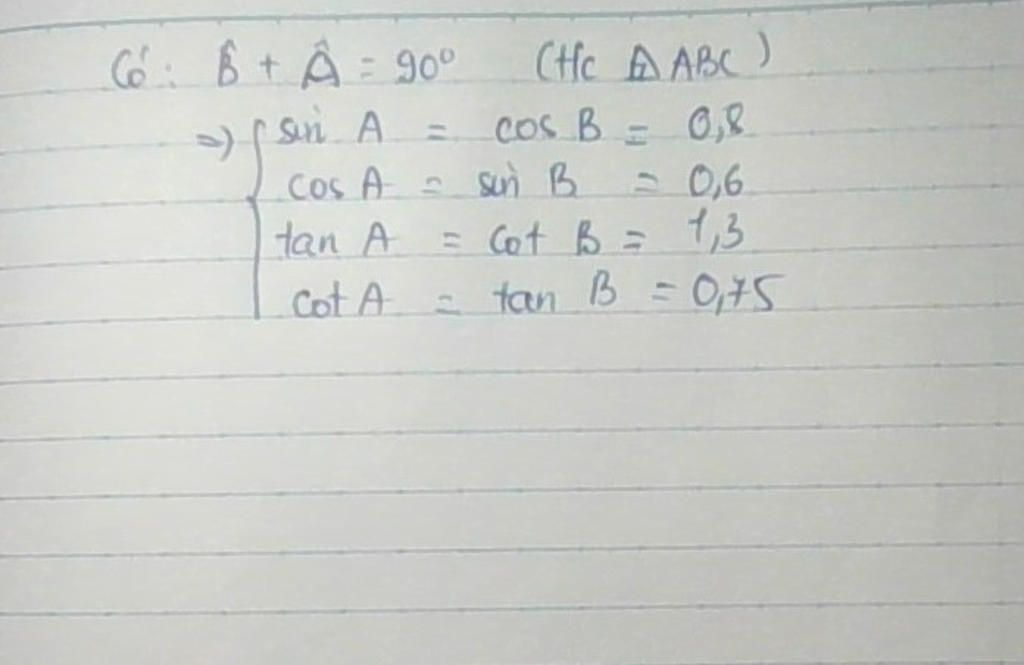 Có: B̂ + Â = 90° (t/c ⊿ ABC)
=> { sin A = cos B = 0,8
cos A = sin B = 0,6
tan A = cot B = 1,3
cot A = tan B = 0,75